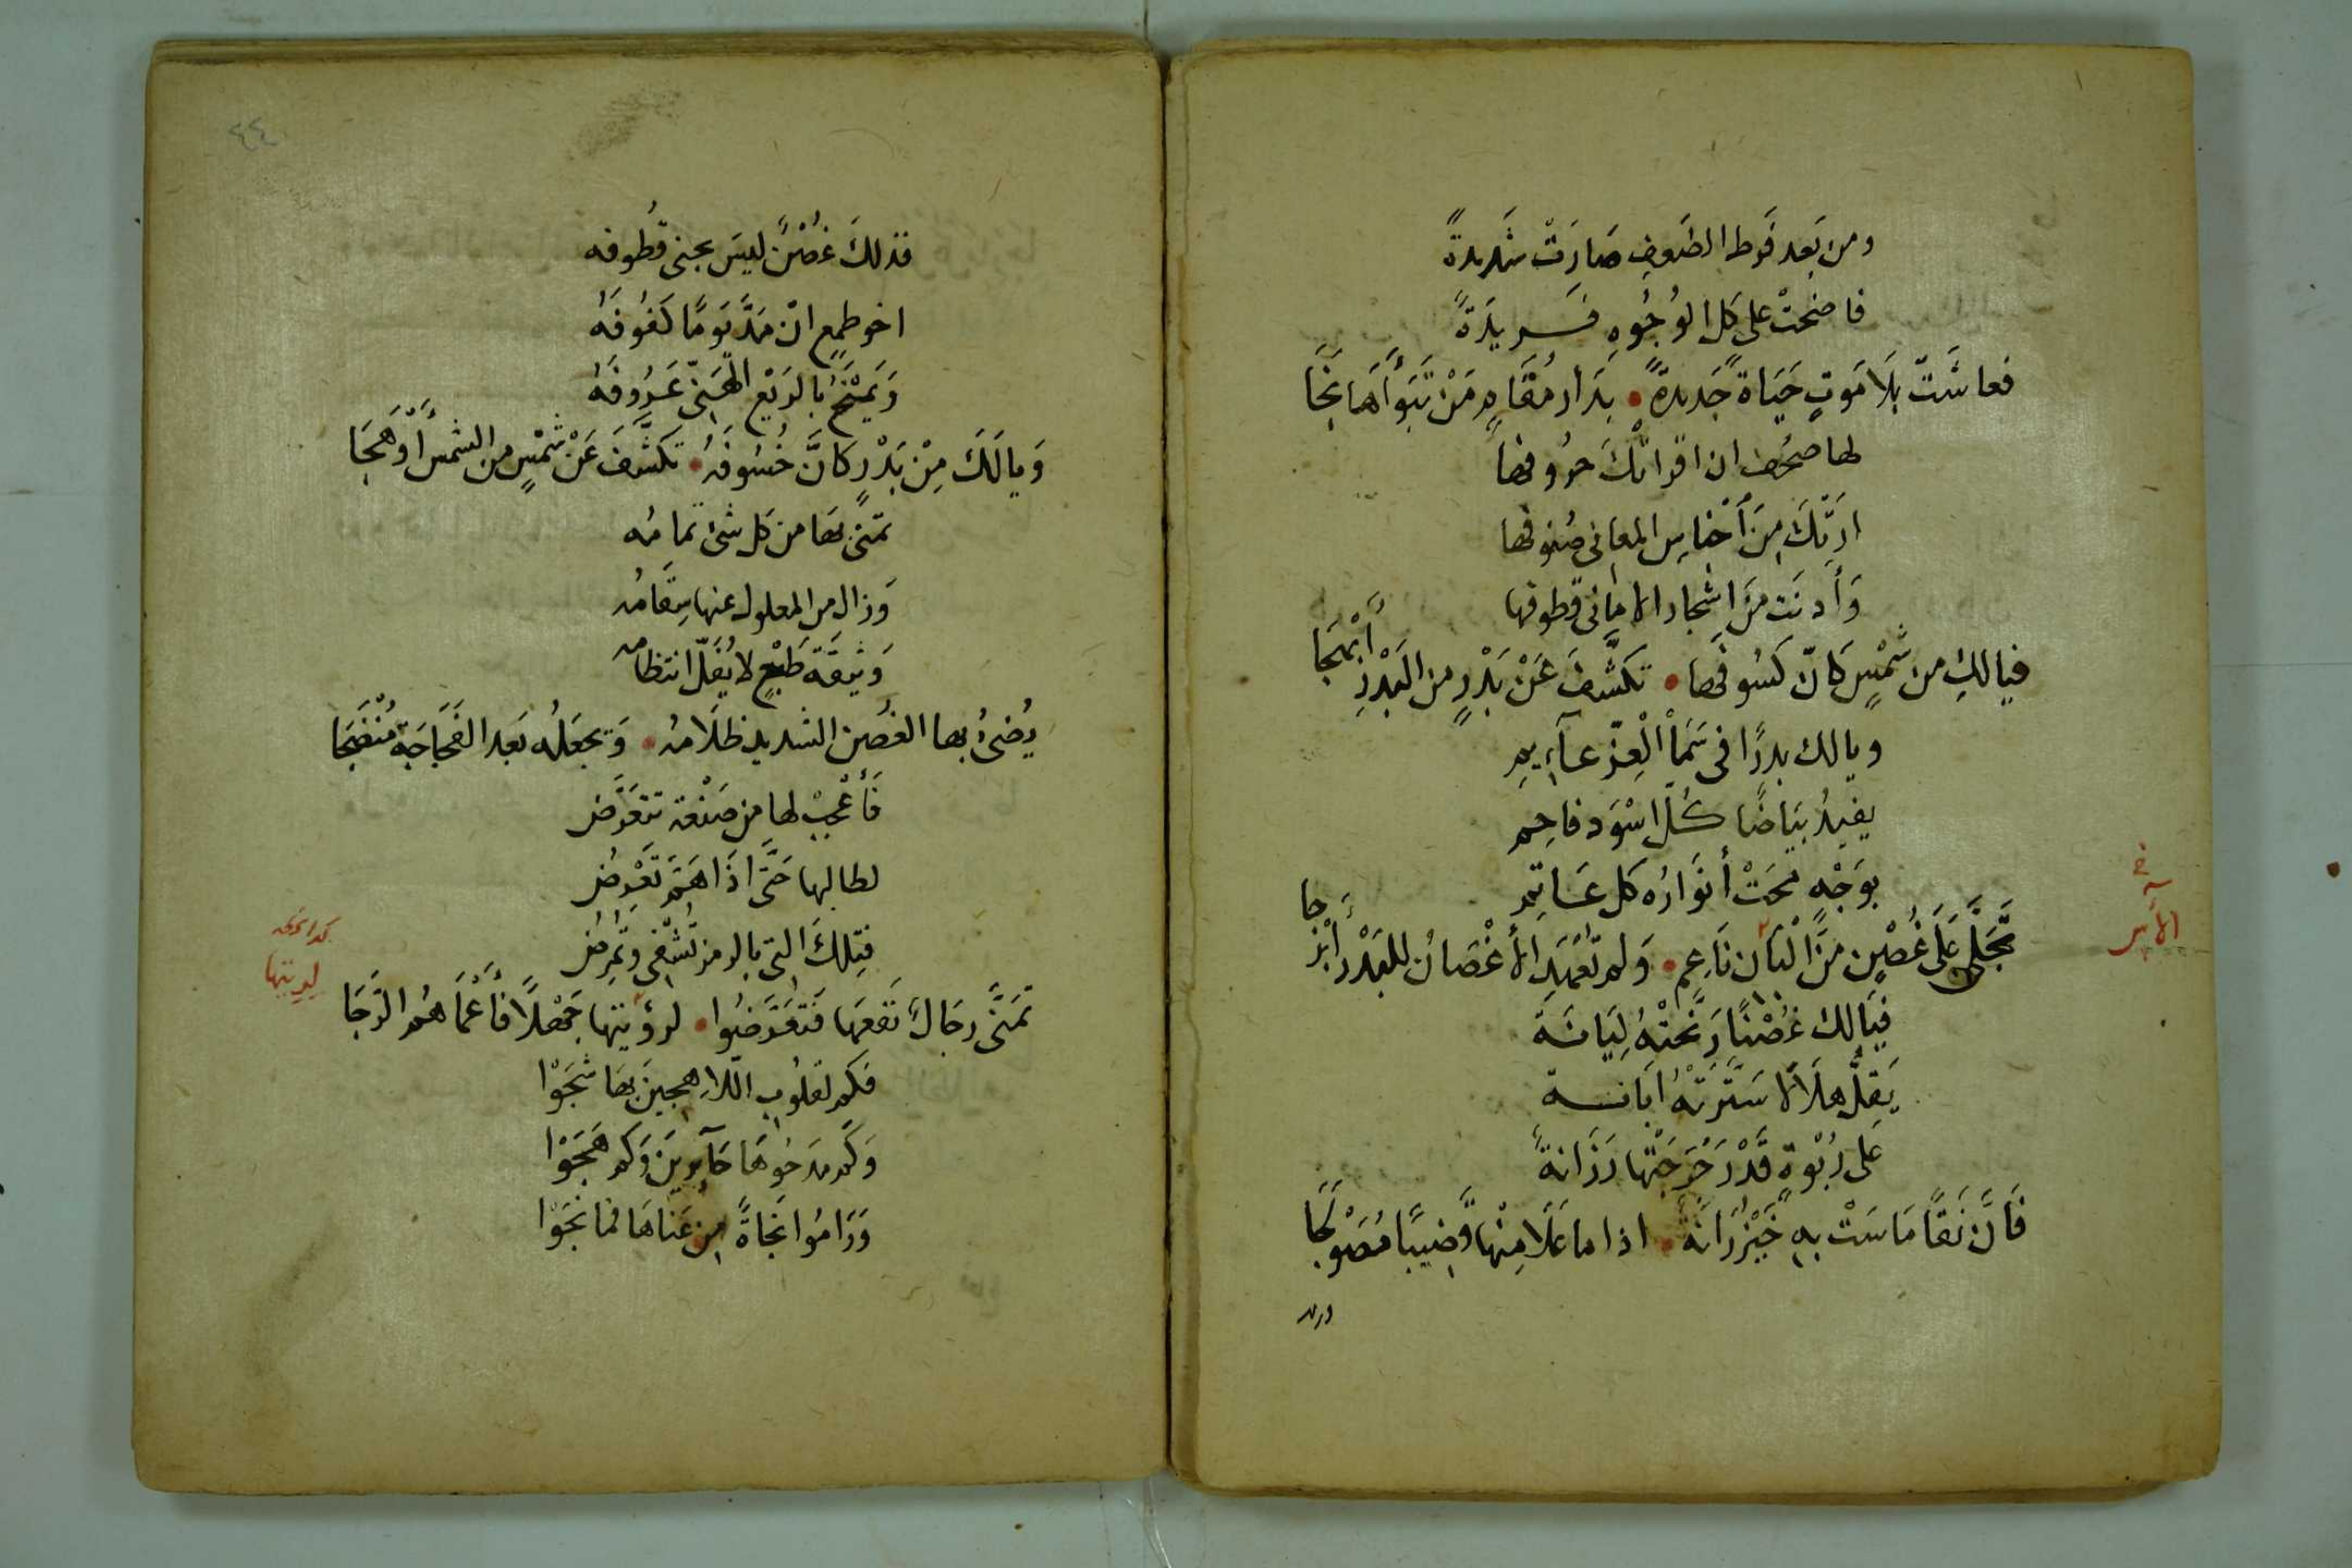 ومن بَعد فَرط الضَعفِ صَارَتْ شَدِيدةً
فاضحَتْ على كل الوُجُوهِ فَرِيدَةً
فعاشَتْ بلَا مَوتٍ حَيَاة جَديدةً • بدَار مُقَامٍ مَنْ تَبَوَّأَهَا نَجَا
لها صحُف ان اقراتكَ حرُوفها
ارَتكَ مِنَ أجْناسِ المعانى صُنوفها
وَأَدنَت مِنَ اشجار الامانى قطوفها
فيالكِ من شَمْسٍ كانّ كسُوفها • تكَشَّفَ عَنْ بَدْرٍ من البَدْرِ أَبْهَجَا
ويالك بدرًا فى سَمَاْ الْعِزّ عآيمِ
يفيدُ بيَاضًا كُلّ اسْوَد فاحِم
بوَجْه محَتْ أنوَارُه كل عَاتِم
تجَلَّى عَلَى غُصْنٍ مِنَ الْبَان نَاعِم • وَلم تعْهَدِ الأَغْصَانُ للبَدْر أَبْرُجا
في
الآس
فيَالك غُصْنًا رَنَّحتْهُ لِيَانَة
يَقِلُّ هلَالا سَتَّرَتْهُ ابَانة
على رُبْوةٍ قَدْ رَجْرَجَتْها رَزَانةً
فَانَّ نَقًا مَاسَتْ بهِ خَيْزُرَانَةً • اذا ما عَلَا مِنْهَا قَضِيبًا مُصَوْلَجَا
٤٤
فذلكَ غصْنٌ ليسَ بجنى قُطوفه
اخو طمعٍ انْ مَدَّ يَومًا كفُوفَهُ
وَيَمْنَحُ بالرَيْعِ الهَنىّ عَرُوفَهُ
وَيالَكَ مِنْ بَدْرٍ كَانَّ خُسُوفَهُ • تكَشَّفَ عَنْ شَمْسٍ من الشمسُ أَوْهَجَا
تمنَى بهَا من كل شئ تمامُه
وَزال من المعلول عنها سِقَامُه
وَثيقَة طَبْعٍ لا يُفَلّ انتظامه
يُضئُ بها الغُصن الشديد ظلَامُه • وَتجعَلُه بَعد الفَجَاجَة مُنْضَجَا
فَأَعْجِبْ لها من صَنْعَة تتعَرَّض
لطالبها حَتَّى اذَا هَمَّ تَعْرِضُ
فتِلكَ التى بالرمز تُشْفى وَتمْرِضُ
تمَنَّى رجَالٌ نَفعَهَا فَتعَرَّضُوا • لرؤيتها جَهْلًا فَأَعْمَاهُم الرَجَا
لديتها
فكم لقلُوبِ اللّاهِجينَ بهَا شَجَوْا
وَكم مدَحُوهَا حَآيرينَ وَكم هَجَوْا
وَرَامُوا نجَاةً مِن عَنَاهَا فما نجَوْا